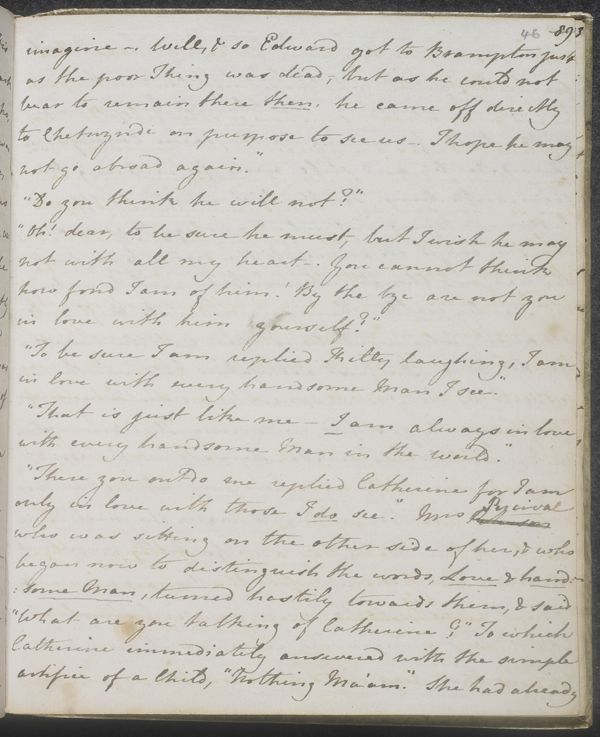 46 893
imagine -. Well, & so Edward got to Brampton just
as the poor Thing was dead,- but as he could not
bear to remain there then, he came off directly
to Chetwynde on purpose to see us -. I hope he may
not go abroad again."
"Do you think he will not?"
"Oh! dear, to be sure he must, but I wish he may
not with all my heart -. You cannot think
how fond I am of him! By the bye are not you
in love with him yourself?"
"To be sure I am replied Kitty laughing, I am
in love with every handsome Man I see."
"That is just like me - I am always in love
with every handsome Man in the world."
"There you outdo me replied Catherine for I am
only in love with those I do see." Mrs Percival
who was sitting on the other side of her, & who
began now to distinguish the words, Love & hand=
=some Man, turned hastily towards them, & said
"What are you talking of Catherine?" To which
Catherine immediately answered with the simple
artifice of a Child, "Nothing Ma'am." She had already